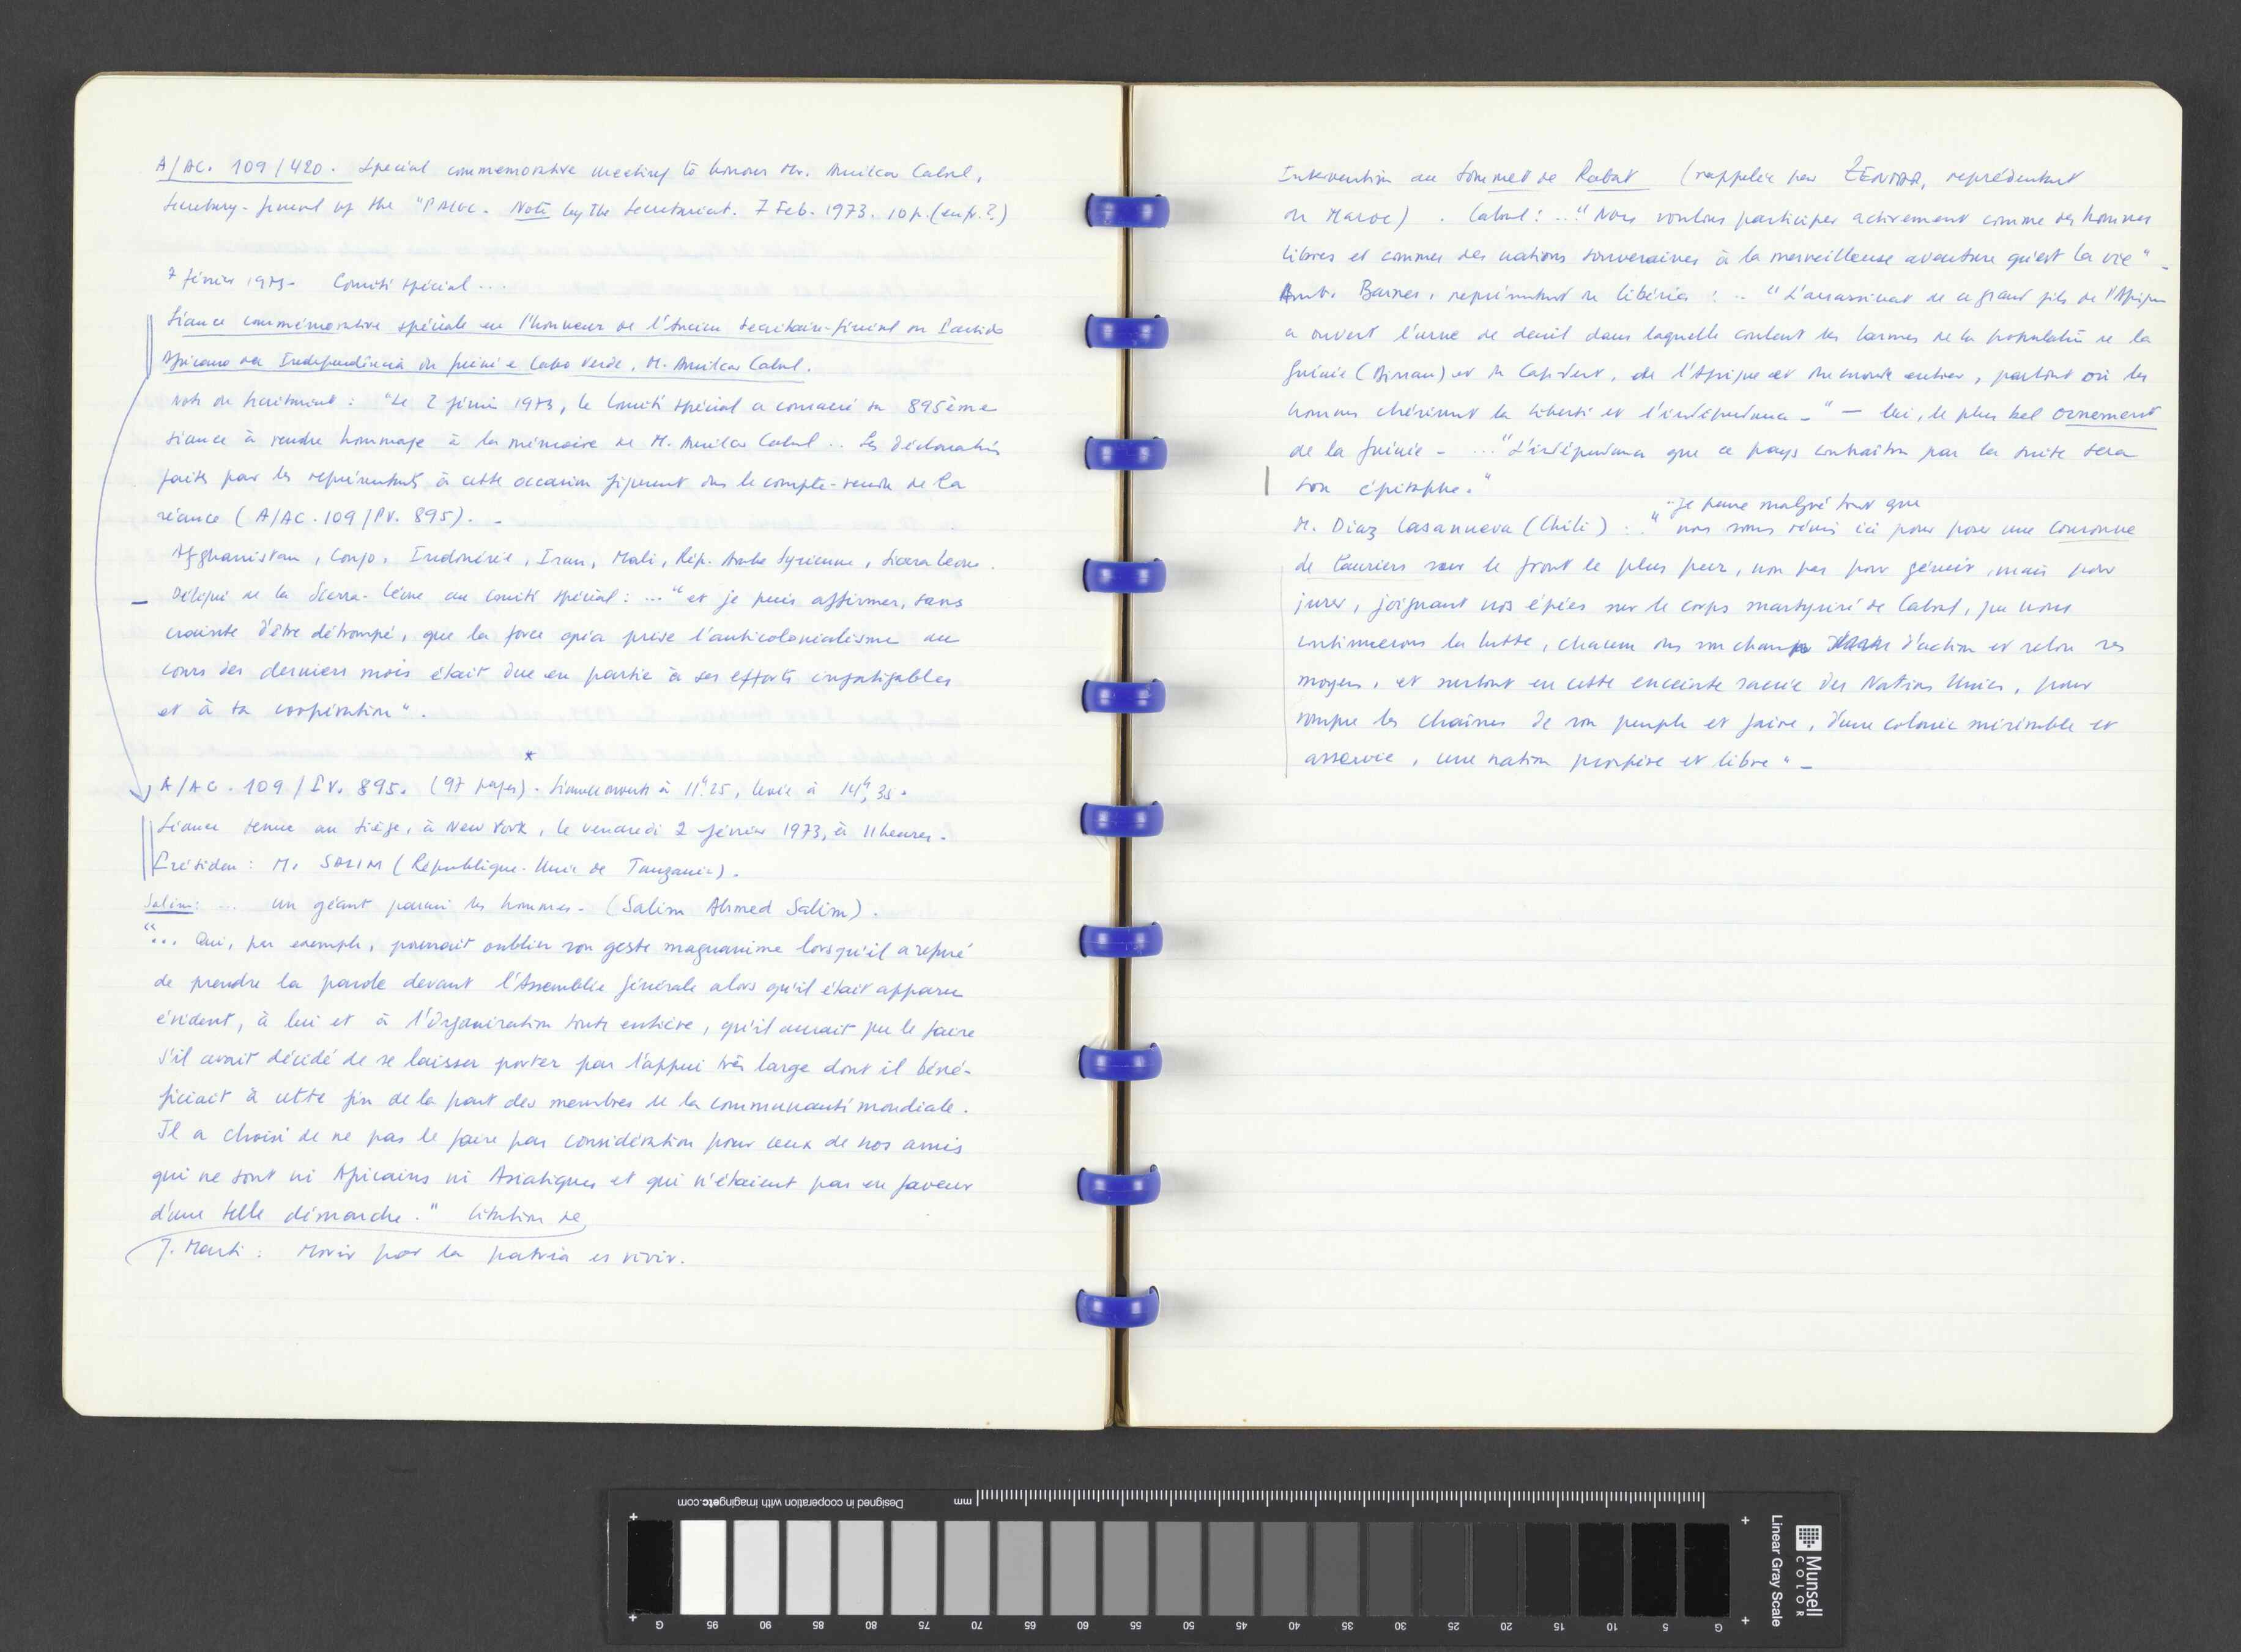 A/AC. 109/420. Special commemorative meeting to honour Mr. Amilcar Cabral,
Secretary-general of the "PAIGC. Note by the Secretariat. 7 Feb. 1973. 10 p. (en fr.?)
7 février 1973. Comité spécial...
Séance commémorative spéciale en l'honneur de l'ancien Secrétaire-général du Partido
Africano da Independência da Guiné e Cabo Verde, M. Amilcar Cabral.
Note du Secrétariat : "Le 2 février 1973, le Comité spécial a consacré sa 895ème
séance à rendre hommage à la mémoire de M. Amilcar Cabral... Les déclarations
faites par les représentants à cette occasion figurent dans le compte-rendu de la
séance (A/AC.109/PV. 895). -
Afghanistan, Congo, Indonésie, Iran, Mali, Rép. Arabe Syrienne, Sierra Leone.
- Délégué de la Sierra-Léone au Comité spécial : ... "et je puis affirmer, sans
crainte d'être détrompé, que la force qu'a prise l'anticolonialisme au
cours des derniers mois était due en partie à ses efforts infatigables
et à sa coopération".
*
A/AC. 109/PV. 895. (97 pages). Séance ouverte à 11h.25, levée à 14h,35.
Séance tenue au siège, à New York, le vendredi 2 février 1973, à 11 heures.
Président : M. SALIM (République-Unie de Tanzanie).
Salim: ... un géant parmi les hommes. (Salim Ahmed Salim).
"... Qui, par exemple, pourrait oublier son geste magnanime lorsqu'il a refusé
de prendre la parole devant l'Assemblée générale alors qu'il était apparu
évident, à lui et à l'Organisation toute entière, qu'il aurait pu le faire
s'il avait décidé de se laisser porter par l'appui très large dont il béné-
ficiait à cette fin de la part des membres de la communauté mondiale.
Il a choisi de ne pas le faire par considération pour ceux de nos amis
qui ne sont ni Africains ni Asiatiques et qui n'étaient pas en faveur
d'une telle démarche." Citation de
J. Marti : Morir por la patria es vivir.
Intervention au Sommet de Rabat (rappelée par ZENTAR, représentant
du Maroc). Cabral : ..."Nous voulons participer activement comme des hommes
libres et comme des nations souveraines à la merveilleuse aventure qu'est la vie" -
Amb. Barnes, représentant du Libéria : .. "L'assassinat de ce grand fils de l'Afrique
a ouvert l'urne de deuil dans laquelle coulent les larmes de la population de la
Guinée (Bissau) et du Cap-Vert, de l'Afrique et du monde entier, partout où les
hommes chérissent la liberté et l'indépendance -" - lui, le plus bel ornement
de la Guinée - ..."L'indépendance que ce pays connaîtra par la suite sera
son épitaphe."
"Je pense malgré tout que
M. Diaz Casanueva (Chili) : "nous sommes réunis ici pour poser une couronne
de lauriers sur le front le plus pur, non pas pour gémir, mais pour
jurer, joignant nos épées sur le corps martyrisé de Cabral, que nous
continuerons la lutte, chacun dans son champ d'action et selon ses
moyens, et surtout en cette enceinte sacrée des Nations Unies, pour
rompre les chaînes de son peuple et faire, d'une colonie misérable et
asservie, une nation prospère et libre" -
Designed in cooperation with imagingetc.com
mm
Munsell
COLOR
Linear Gray Scale
G 95 90 85 80 75 70 65 60 55 50 45 40 35 30 25 20 15 10 5 G